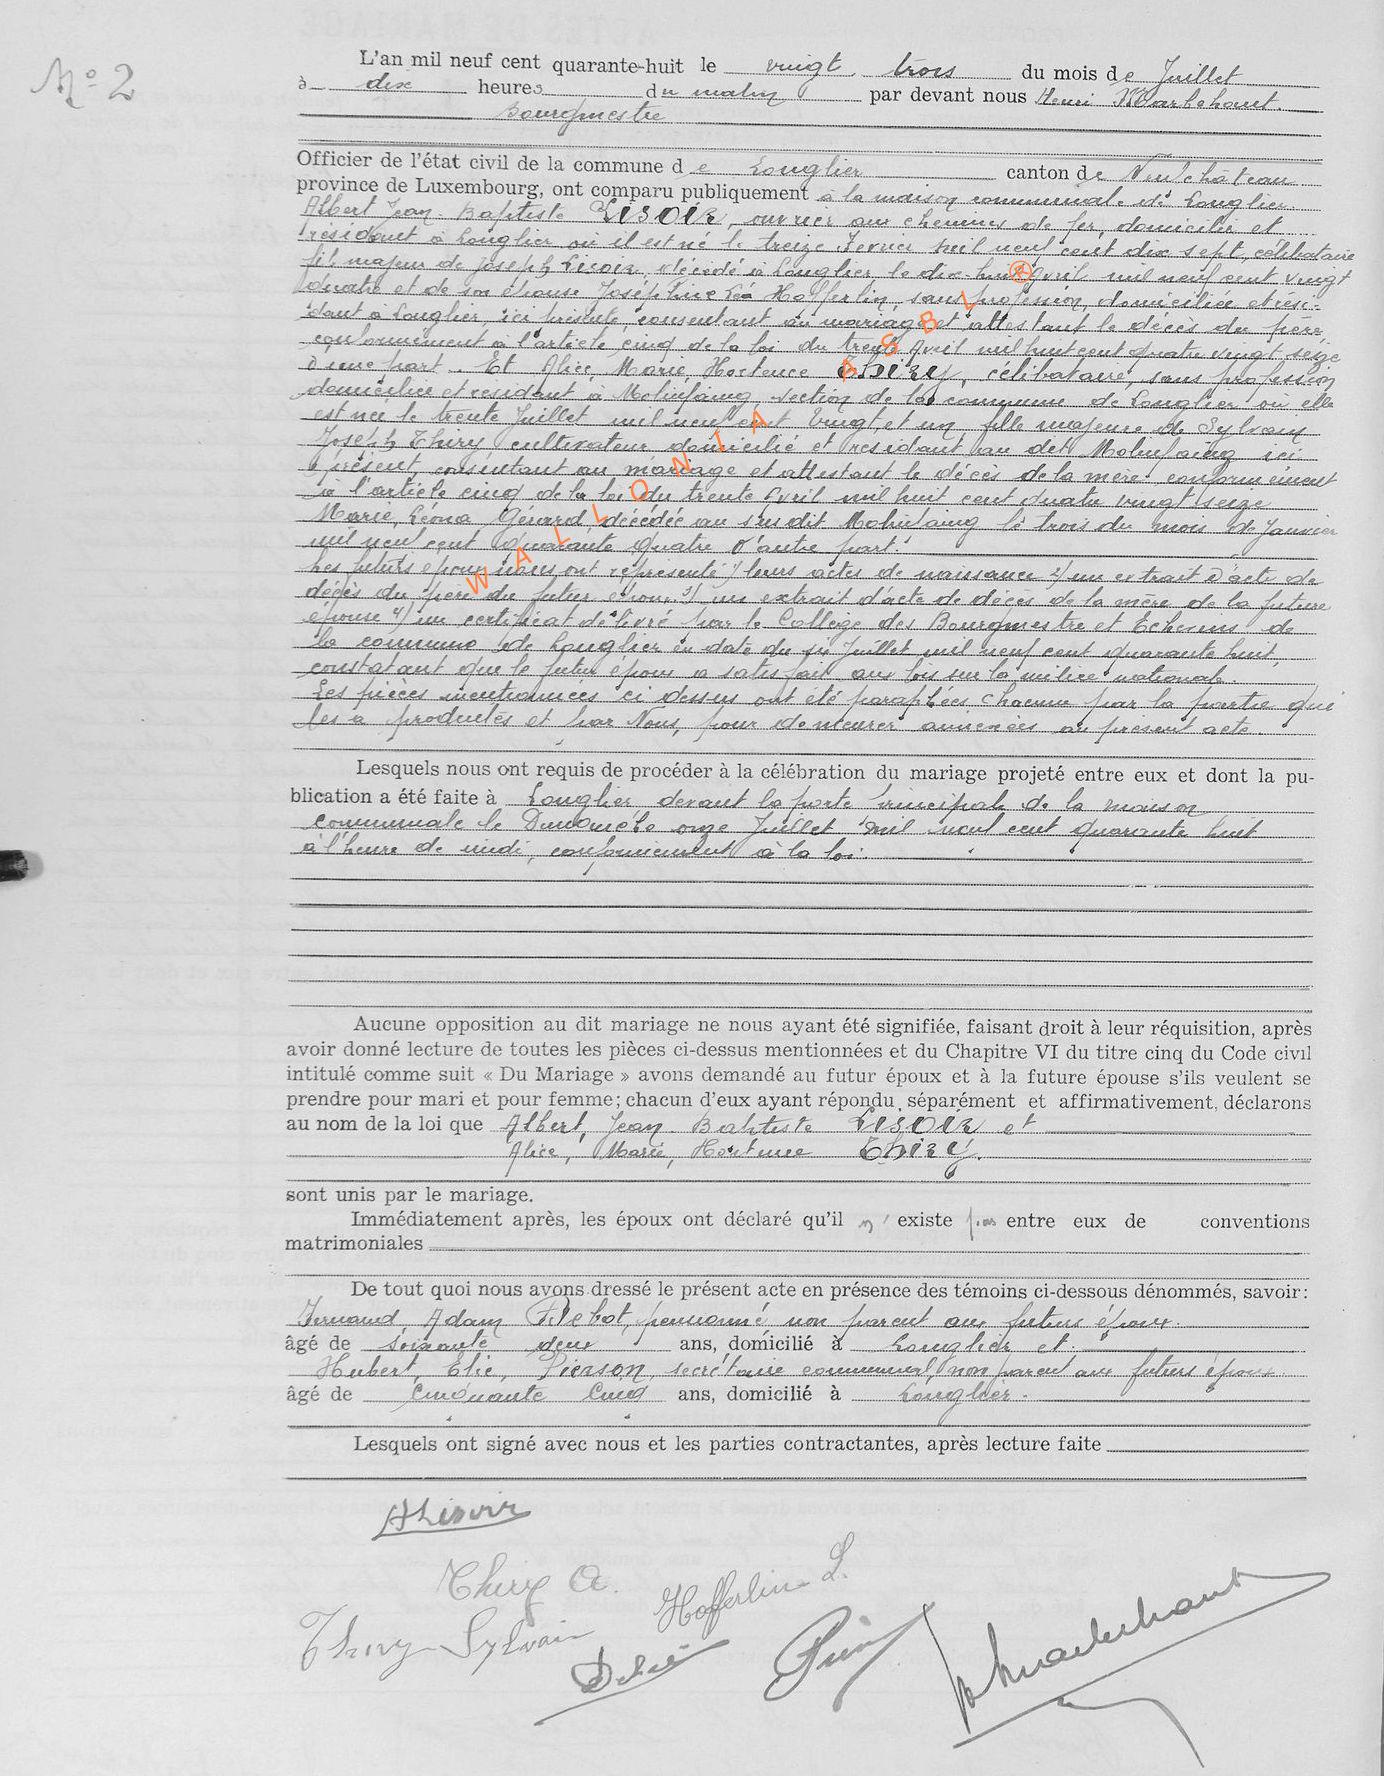 N° 2
L'an mil neuf cent quarante-huit le vingt trois du mois de Juillet
à dix heures du matin par devant nous Henri Marbehant
Bourgmestre
Officier de l'état civil de la commune de Longlier canton de Neufchâteau
province de Luxembourg, ont comparu publiquement à la maison communale de Longlier
Albert Jean-Baptiste LISOIR, ouvrier aux chemins de fer, domicilié et
résidant à Longlier où il est né le treize Février mil neuf cent dix sept, célibataire
fils majeur de Joseph Lisoir, décédé à Longlier, le dix-huit Avril mil neuf cent vingt
quatre et de son épouse Joséphine Léa Hofferlin, sans profession, domiciliée et rési-
dant à Longlier ici présente, consentant au mariage et attestant le décès du père,
conformément à l'article cinq de la loi du trente Avril mil huit cent quatre vingt seize
d'une part. Et Alice, Marie, Hortence Thiry, célibataire, sans profession
domiciliée et résidant à Molinfaing, section de la commune de Longlier où elle
est née le trente Juillet mil neuf cent vingt et un fille majeure de Sylvain
Joseph Thiry cultivateur domicilié et résidant au dit Molinfaing ici
présent, consentant au mariage et attestant le décès de la mère conformément
à l'article cinq de la loi du trente Avril mil huit cent quatre vingt seize
Marie, Léona Gérard, décédée au susdit Molinfaing le trois du mois de Janvier
mil neuf cent quarante quatre d'autre part.
Les futurs époux nous ont représenté 1) leurs actes de naissance 2) un extrait d'acte de
décès du père du futur époux 3) un extrait d'acte de décès de la mère de la future
épouse 4) un certificat délivré par le Collège des Bourgmestre et Echevins de
la commune de Longlier en date du six Juillet mil neuf cent quarante huit,
constatant que le futur époux a satisfait aux lois sur la milice nationale.
Les pièces mentionnées ci dessus ont été paraphées chacune par la partie qui
les a produites et par Nous, pour demeurer annexées au présent acte.
Lesquels nous ont requis de procéder à la célébration du mariage projeté entre eux et dont la pu-
blication a été faite à Longlier devant la porte principale de la maison
communale le Dimanche onze Juillet mil neuf cent quarante huit
à l'heure de midi, conformément à la loi.
Aucune opposition au dit mariage ne nous ayant été signifiée, faisant droit à leur réquisition, après
avoir donné lecture de toutes les pièces ci-dessus mentionnées et du Chapitre VI du titre cinq du Code civil
intitulé comme suit « Du Mariage » avons demandé au futur époux et à la future épouse s'ils veulent se
prendre pour mari et pour femme; chacun d'eux ayant répondu séparément et affirmativement, déclarons
au nom de la loi que Albert, Jean-Baptiste LISOIR et
Alice, Marie, Hortence Thiry.
sont unis par le mariage.
Immédiatement après, les époux ont déclaré qu'il n'existe pas entre eux de conventions
matrimoniales
De tout quoi nous avons dressé le présent acte en présence des témoins ci-dessous dénommés, savoir:
Fernand, Adam, pensionné non parent aux futurs époux.
âgé de soixante deux ans, domicilié à Longlier et
Hubert, Elie, Pierson, secrétaire communal, non parent aux futurs époux
âgé de cinquante cinq ans, domicilié à Longlier.
Lesquels ont signé avec nous et les parties contractantes, après lecture faite
ALisoir
Thiry A.
Hofferlin L.
Thiry Sylvain
WALLONIA ASBL ®